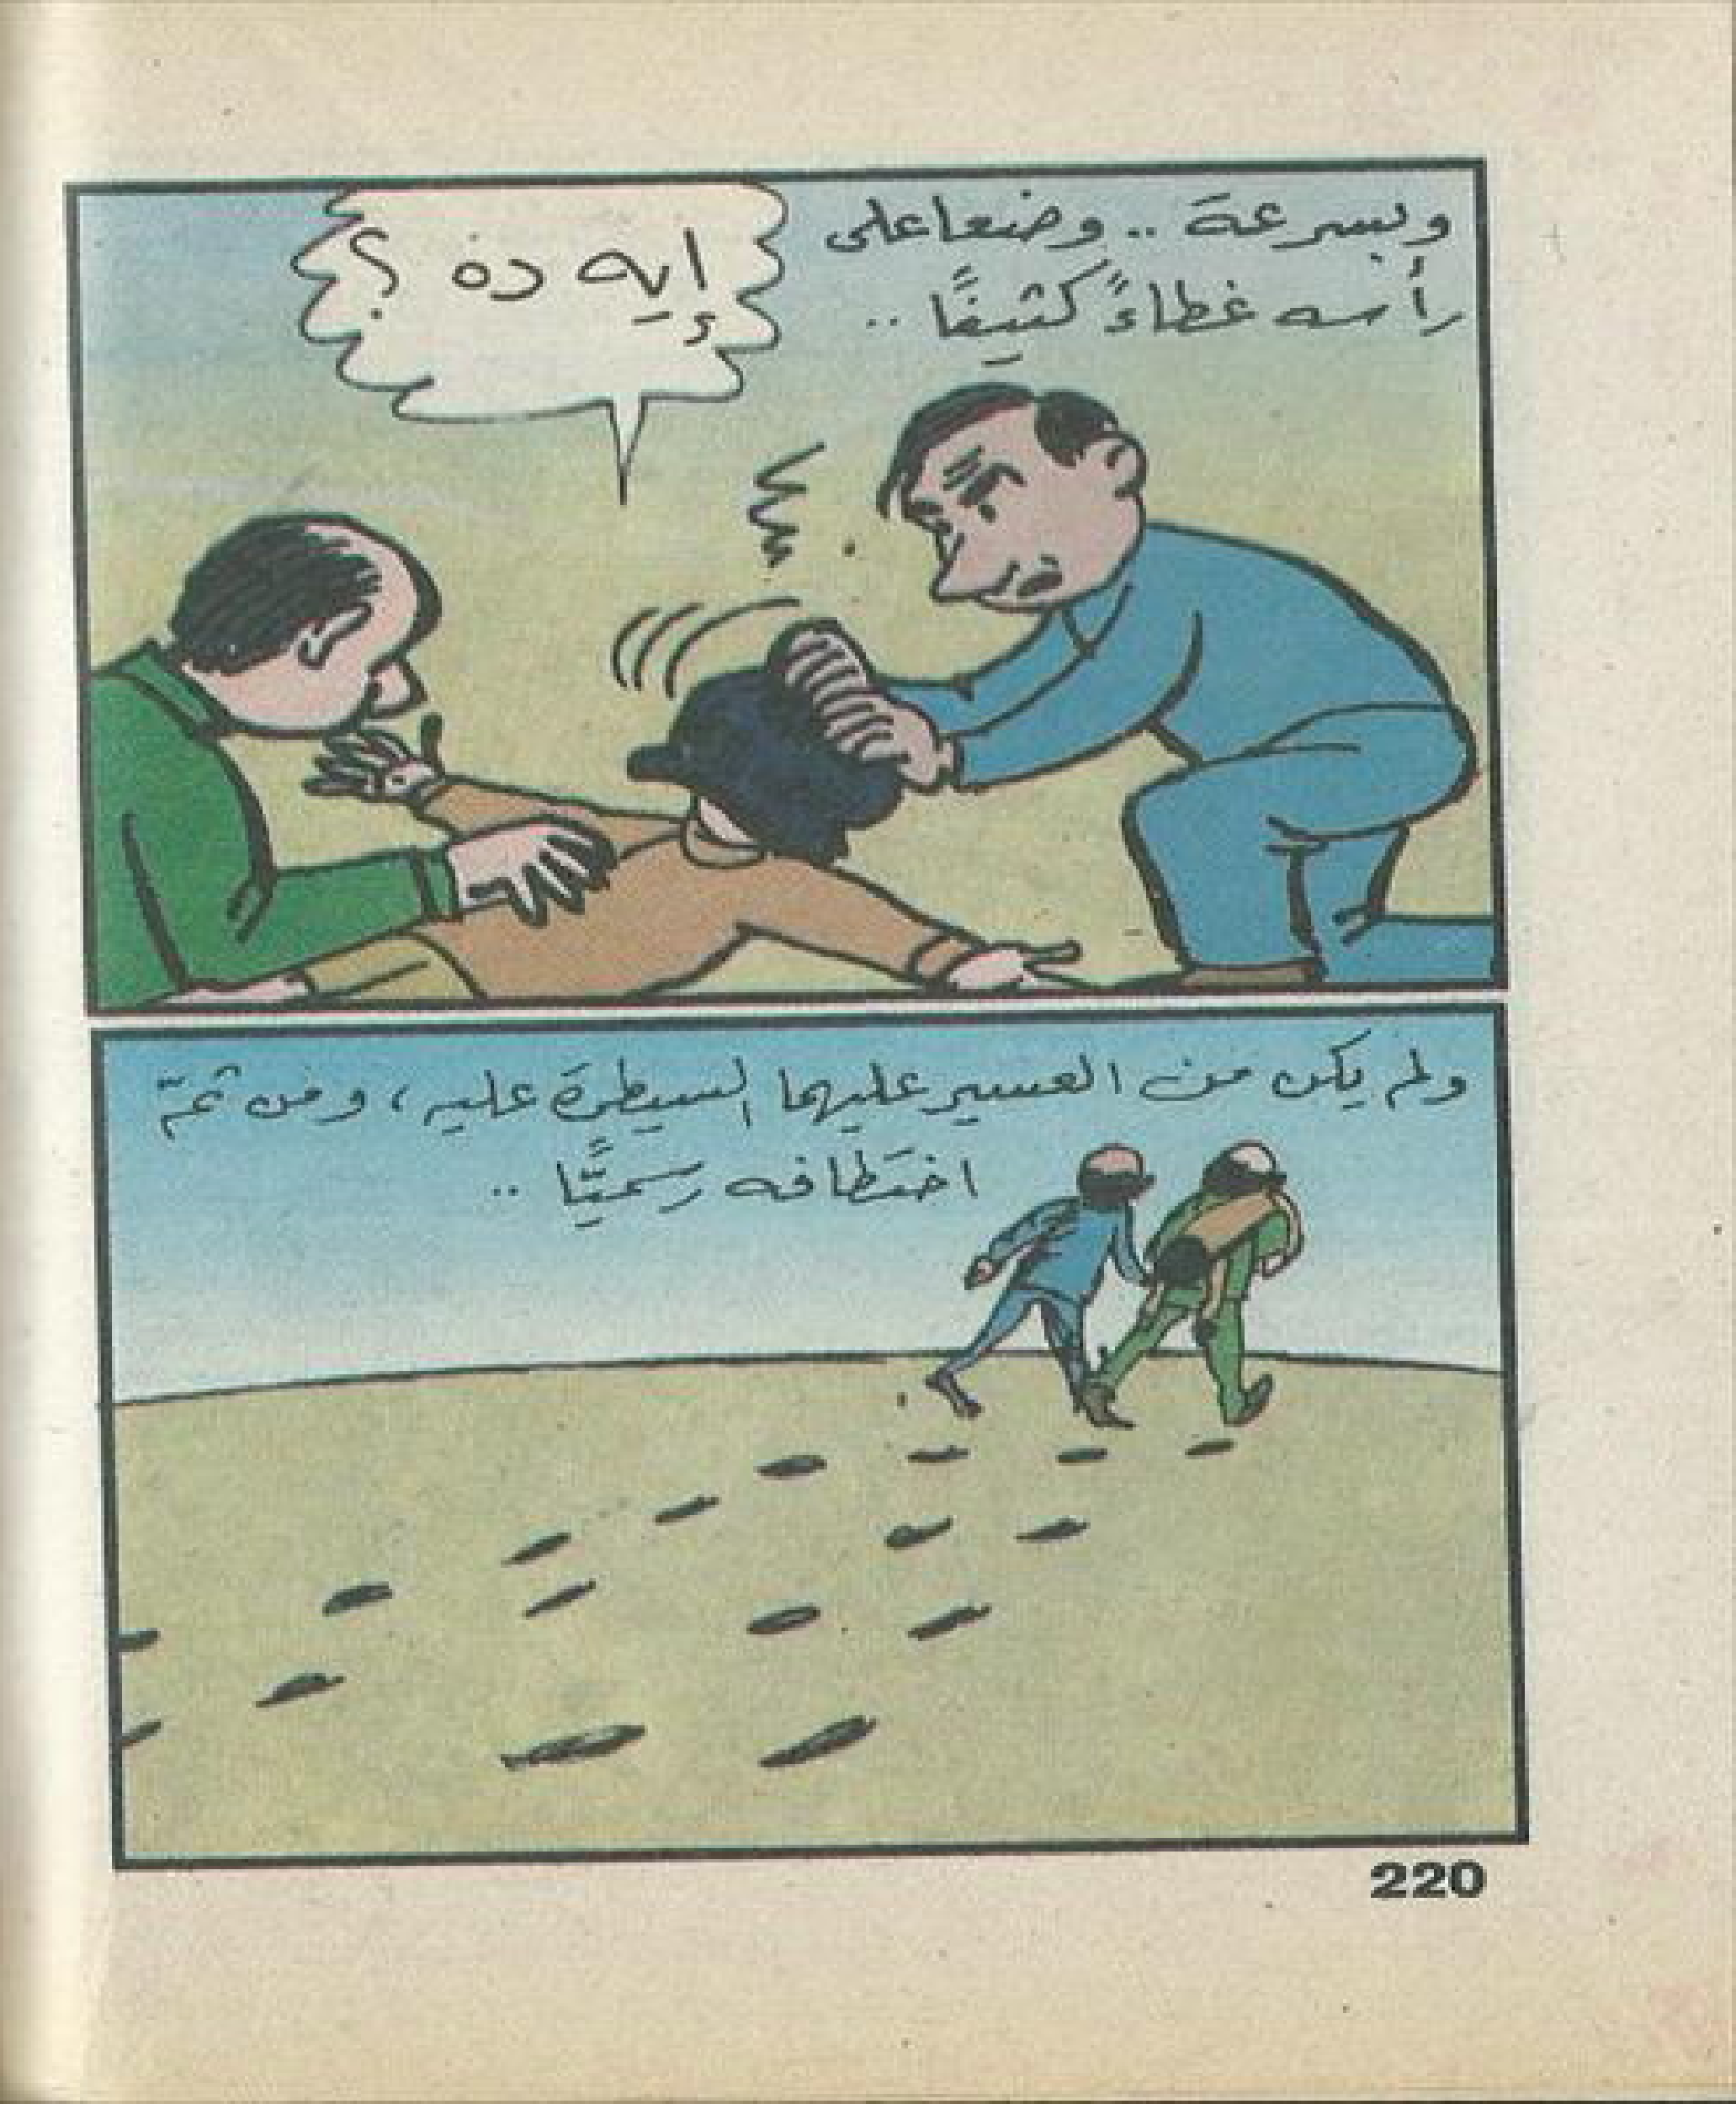 وبسرعة .. وضعا على
رأسه غطاءً كثيفًا ..
إيه ده ؟
ولم يكن من العسير عليهما السيطرة عليه، ومن ثمّ
اختطافه رسميًّا ..
220